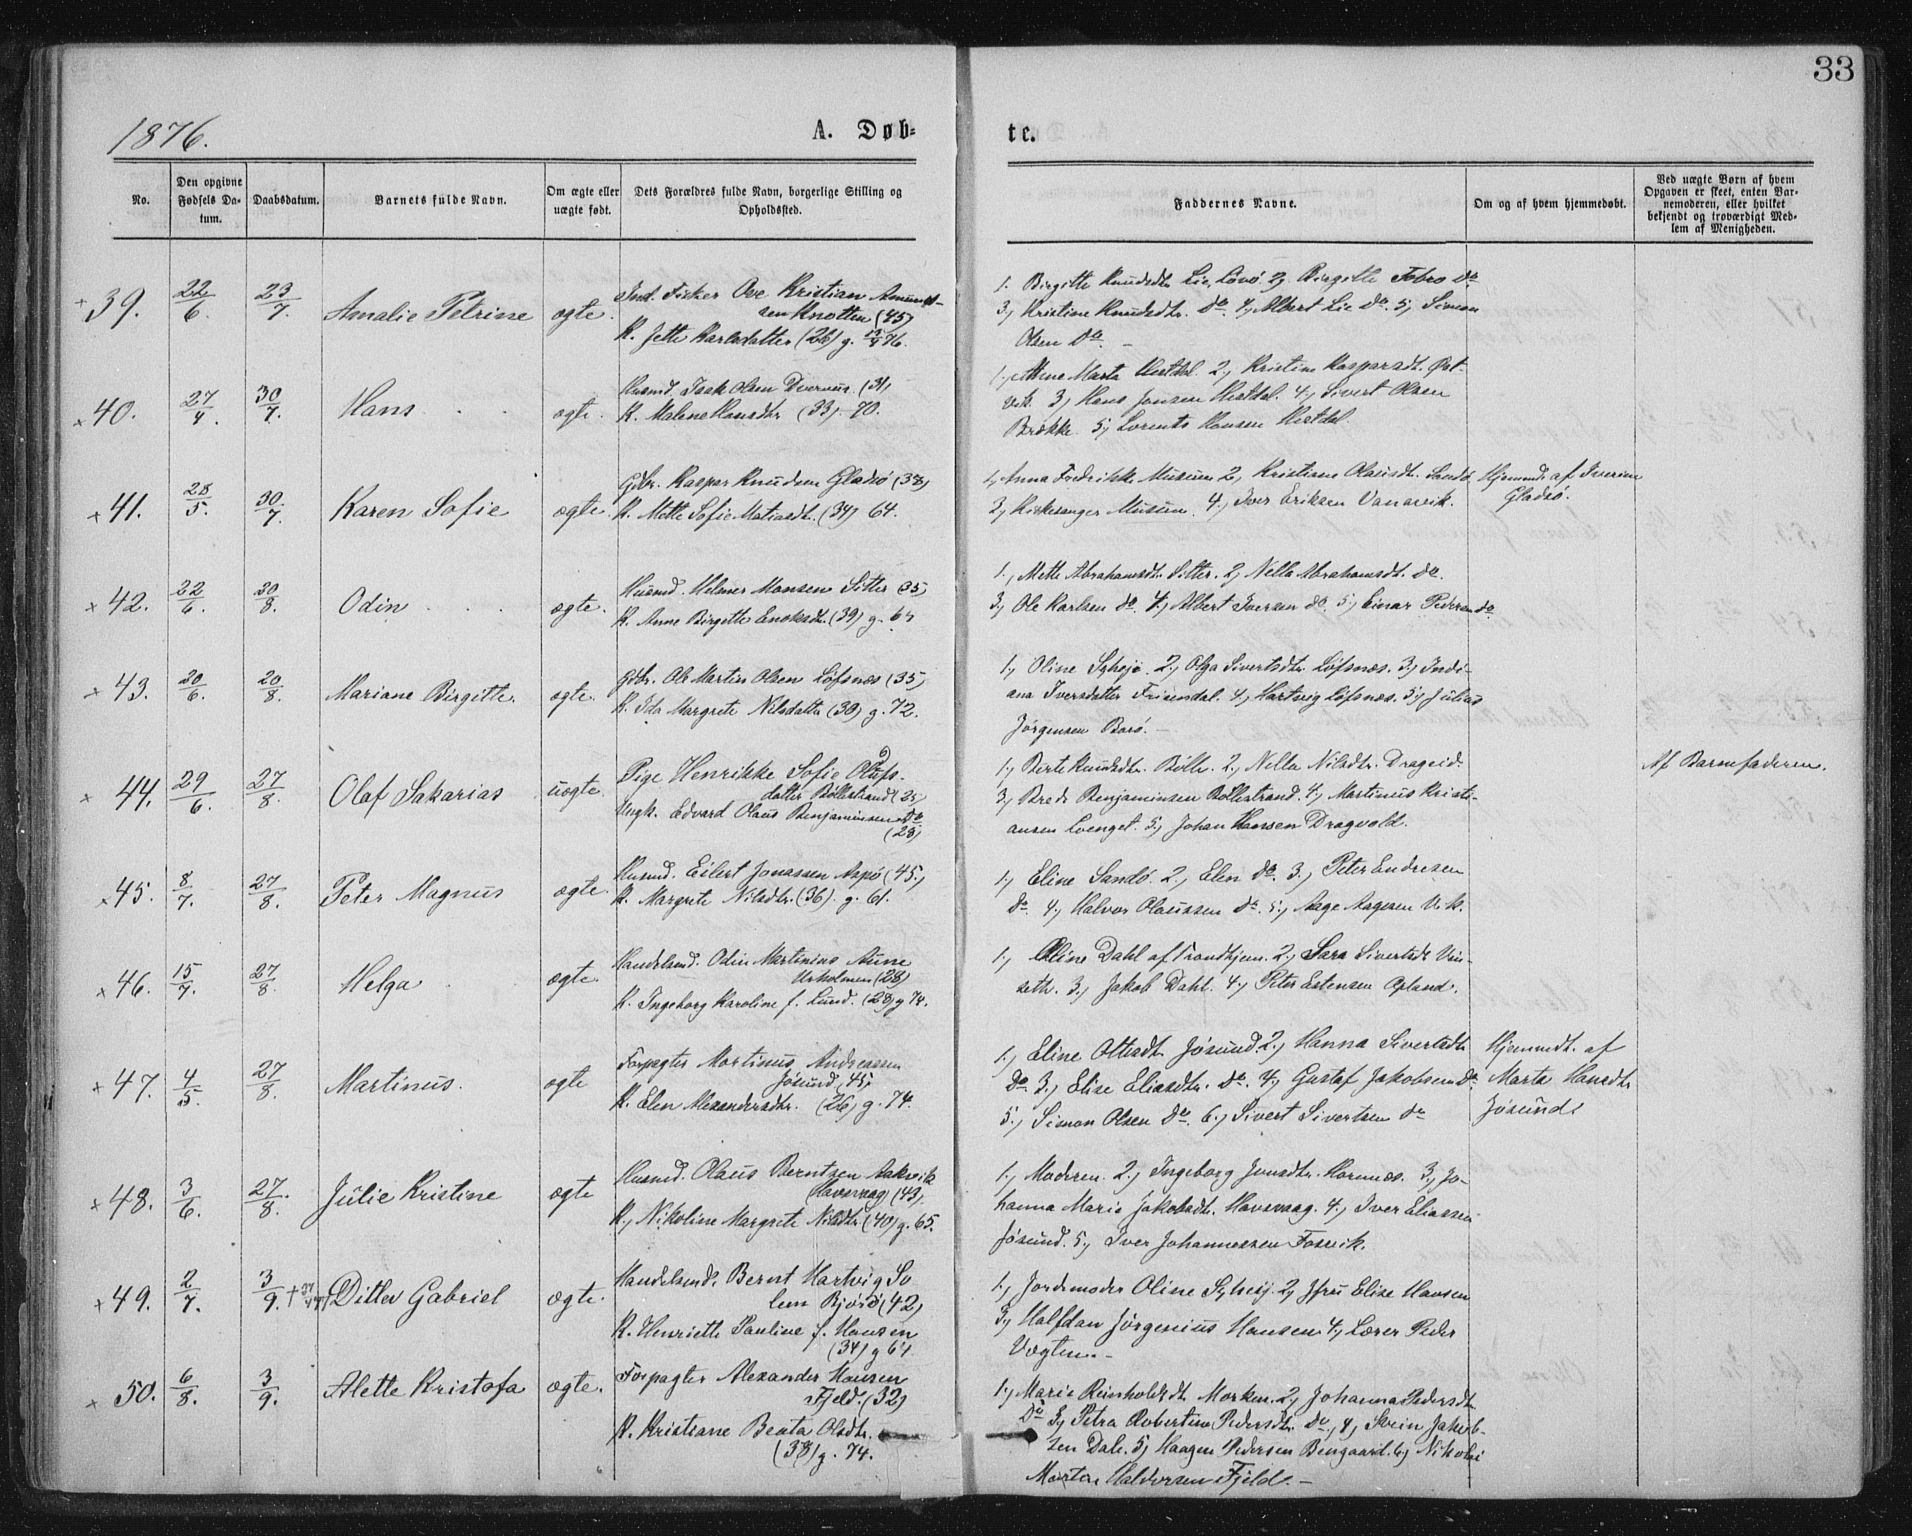 33
1876.
A. Døb-
te.
No.
Den opgivne Fødsels Da-tum.
Daabsdatum.
Barnets fulde Navn.
Om ægte eller uægte født.
Dets Forældres fulde Navn, borgerlige Stilling og Opholdssted.
Faddernes Navne.
Om og af hvem hjemmedøbt.
Ved uægte Børn af hvem Opgaven er skeet, enten Bar-nemoderen, eller hvilket bekjendt og troværdigt Med-lem af Menigheden.
39. 22/6. 23/7. Amalie Petrine ægte.
Ind. Fisker Ove Kristian Amund-
sen Knotten (45)
K. Jette Karlsdatter (26) g. 76.
1. Birgitte Knudsdtr. Lie, Lövö. 2, Birgitte Do.
3, Kristine Knudsdtr. Do. 4, Albert Lie Do. 5, Simon
Olsen Do. –
40. 27/4. 30/7. Hans ægte.
Husmd. Isak Olsen (31)
K. Malene Hansdtr. (33). 70.
1, Anne Marta Hestdal. 2, Kristine Kaspersdt. Øst-
vik. 3, Hans Jonsen Hestdal. 4, Sivert Olsen
Brække. 5, Lorents Hansen Hestdal.
41. 28/5. 30/7. Karen Sofie ægte.
Gdbr. Kaspar Knudsen Gladsö (38)
K. Mette Sofie Matiasdt. (34) 64.
1, Anna Fredrikke Musum 2, Kristiane Olausdt. Sandö
3, Kirkesanger Musum. 4, Iver Eriksen Vanarvik.
Hjemmed. af Iverine
Gladsö.
42. 22/6. 20/8. Odin ægte.
Husmd. Helmer Monsen Sitter (35)
K. Anne Birgitte Enoksdt. (39) g. 64
1, Mette Abrahamsdt. Sitter. 2, Nella Abrahamsdt. do.
3, Ole Karlsen do. 4, Albert Iversen do. 5, Einar Pedersen do.
43. 20/6. 20/8. Mariane Birgitte. ægte.
Gdbr. Ole Martin Olsen Löfsnæs (35)
K. Ida Margrete Nilsdatter (30) g. 72.
1, Oline Syhejе. 2, Olga Sivertsdtr. Löfsnæs. 3, Indi-
ana Iversdatter Friendal. 4, Hartvig Löfsnæs. 5, Julius
Jørgensen Borö. –
44. 29/6. 27/8. Olaf Sakarias uægte.
Pige Henrikke Sofie Olufs-
datter Böllestrand (25)
Ungk. Edvard Olaus Benjaminsen Do
(23)
1, Berte Knudsdtr. Bölle. 2, Nella Nilsdtr. Drageid.
3, Brede Benjaminsen Böllestrand. 4, Martinus Kristi-
ansen Lvenget. 5, Johan Hansen Dragvold.
Af Barnefaderen.
45. 8/7. 27/8. Peter Magnus ægte.
Husmd. Eilert Jonassen Aspö (45,)
K. Margrete Nilsdtr. (36). g. 61.
1, Eline Sandö. 2, Elen do. 3, Peter Endresen
Do. 4, Halvor Olaussen do. 5, Aage Aagesen Vik.
46. 15/7. 27/8. Helga ægte.
Handelsmd. Odin Martinius Aune
Urholmen (28)
K. Ingeborg Karoline f. Lund. (28) g 74.
1, Oline Dahl af Trondhjem. 2, Sara Sivertsdt. Vin-
seth. 3, Jakob Dahl. 4, Peter Estensen Opland.
47. 4/5. 27/8. Martinus. ægte
Forpagter Martinus Andreassen
Jøsund (45)
K. Elen Alexandersdtr. (26) g. 74.
1, Eline Ottesdt. Jøsund. 2, Hanna Sivertsdt.
Do 3, Elise Eliasdtr. do. 4, Gustaf Jakobsen do.
5, Simon Olsen do. 6, Sivert Sivertsen do
Hjemmedt. af
Marta Hansdtr.
Jøsund
48. 3/6. 27/8. Julie Kristine ægte
Husmd. Olaus Berntsen Aakvik
Havsvaag (43)
K, Nikoline Margrete Nilsdtr. (40) g. 65.
1, Moderen. 2, Ingeborg Jonsdtr. Hornnæs. 3, Jo-
hanna Marie Jakobsdt. Havsvaag. 4, Iver Eliassen
Jøsund. 5, Iver Johannessen Fosvik.
49. 2/7. 3/9. Ditlev Gabriel ægte.
Handelsmd. Bernt Hartvig So
lem Bjørö (42)
K. Henriette Pauline f. Hansen
(34) g 64
1, Jordemoder Oline Syhej. 2, Jfru Elise Hansen
3, Halfdan Jørgenius Hansen 4, Lærer Peder
Vogten. –
50. 6/8. 3/9. Alette Kristofa ægte.
Forpagter Alexander Hansen
Fjeld. (32)
K. Kristiane Beata Olsdtr.
(33) g. 74.
1, Marie Reinholdtdt. Morken. 2, Johanna Pedersdt.
Do 3, Petra Robertine Pedersdt. do, 4, Svein Jakob-
sen Dale. 5, Haagen Pedersen Bengaard. 6, Nikolai
Morten Haldorsen Fjeld. –